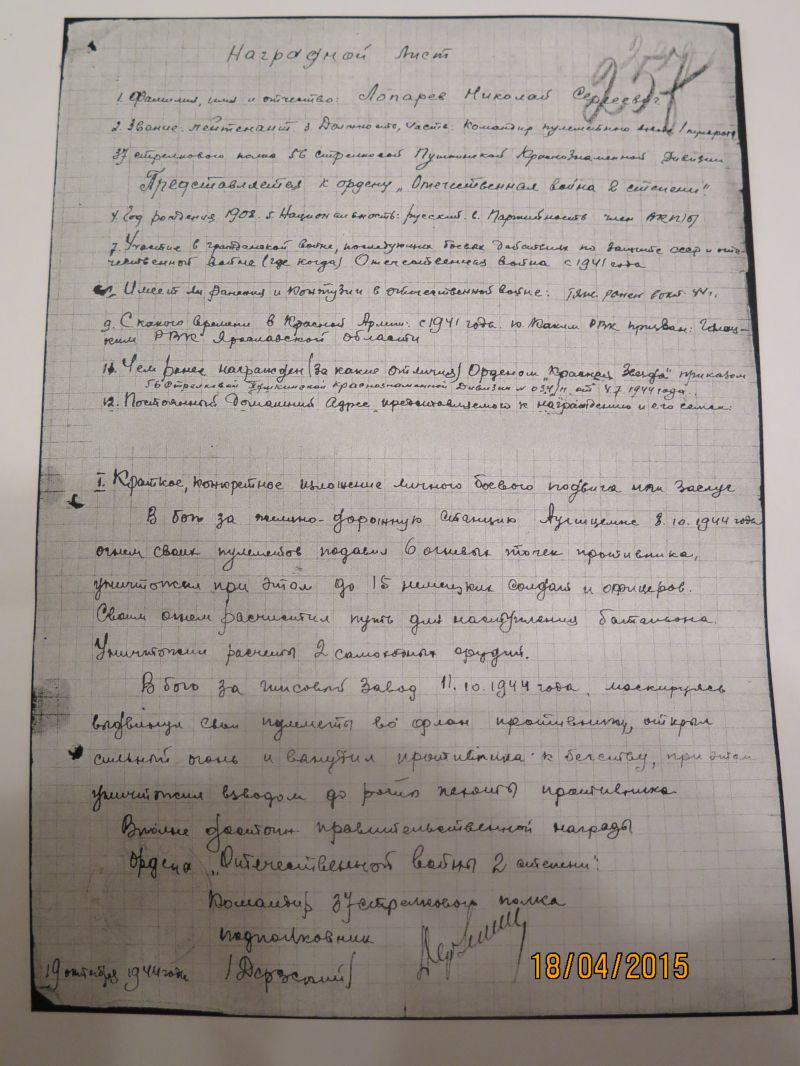 Наградной лист
257
1. Фамилия, имя и отчество: Лопарев Николай Сергеевич
2. Звание: лейтенант 3. Должность, часть: Командир пулеметного взвода
37 стрелкового полка 56 стрелковой Пушкинской Краснознаменной Дивизии
Представляется к ордену „Отечественная война 2 степени"
4. Год рождения 1908. 5. Национальность: русский. 6. Партийность член ВКП/б/
7. Участие в гражданской войне, последующих боевых действиях по защите ссср и оте-
чественной войне (где когда) Отечественная война с 1941 года
8. Имеет ли ранения и контузии в отечественной войне: тяж. ранен 44 г.
9. С какого времени в Красной Армии: с 1941 года. 10. Каким РВК призван:
ким РВК Ярославской области
11. Чем ранее награжден (за какие отличия) Орденом „Красная Звезда" приказом
56 Стрелковой Пушкинской Краснознаменной Дивизии № 034/н от 4.7.1944 года.
12. Постоянный Домашний Адрес представляемого к награждению и его семьи:
I. Краткое, конкретное изложение личного боевого подвига или заслуг
В бою за железно-дорожную станцию 8.10.1944 года
огнем своих пулеметов подавил 6 огневых точек противника,
уничтожил при этом до 15 немецких солдат и офицеров.
Своим огнем расчистил путь для наступления батальона.
Уничтожил расчеты 2 самоходных орудий.
В бою за гипсовый завод 11.10.1944 года, маскируясь
выдвинул свои пулеметы во флан противнику, открыл
сильный огонь и вынудил противника к бегству, при этом
уничтожил взводом до роты пехоты противника
Вполне достоин правительственной награды
Ордена „Отечественной войны 2 степени".
Командир 37 стрелкового полка
подполковник
19 октября 1944 года /Дерзский/
18/04/2015